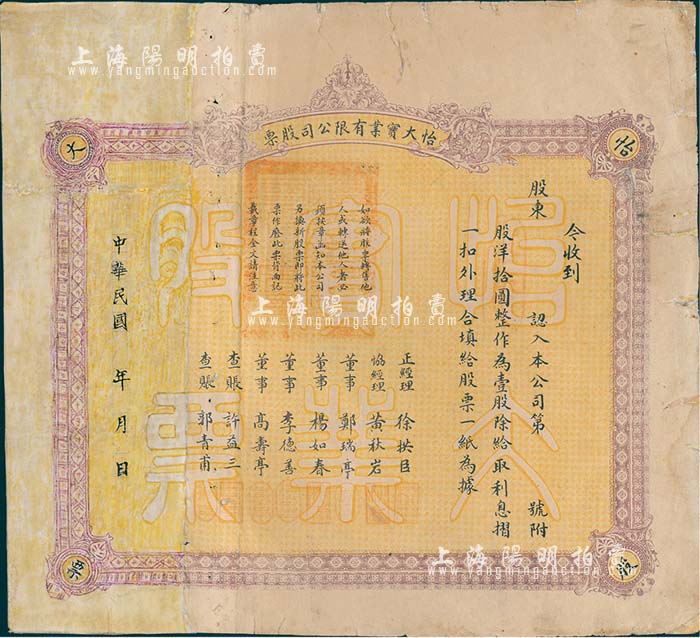 上海陽明拍賣
www.yangmingauction.com
怡大實業有限公司股票
怡
大
股
票
今收到
股東 認入本公司第 號附
股洋拾圓整作為壹股除給取利息摺
一扣外理合填給股票一紙為據
如欲將股票轉售他
人或轉送他人者必
須按章函知本公司
另換新股票即將此
票作廢此票背面記
載章程全文請注意
正經理 徐拱臣
協經理 黃秋岩
董事 鄭瑞亭
董事 楊如春
董事 李德善
董事 高壽亭
查賬 許益三
查賬 郭青甫
中華民國 年 月 日
怡大
實業
股票
上海陽明拍賣
www.yangmingauction.com
上海陽明拍賣
www.yangmingauction.com